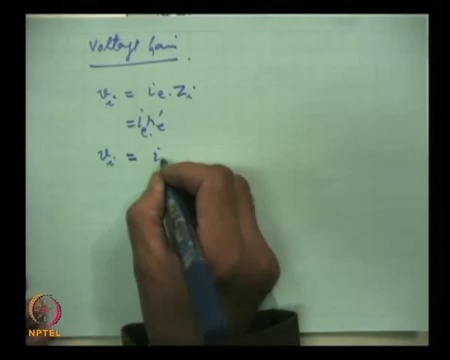 Voltage Gain
v_i = i_e . Z_i
= i_e r_e'
v_i = i
NPTEL